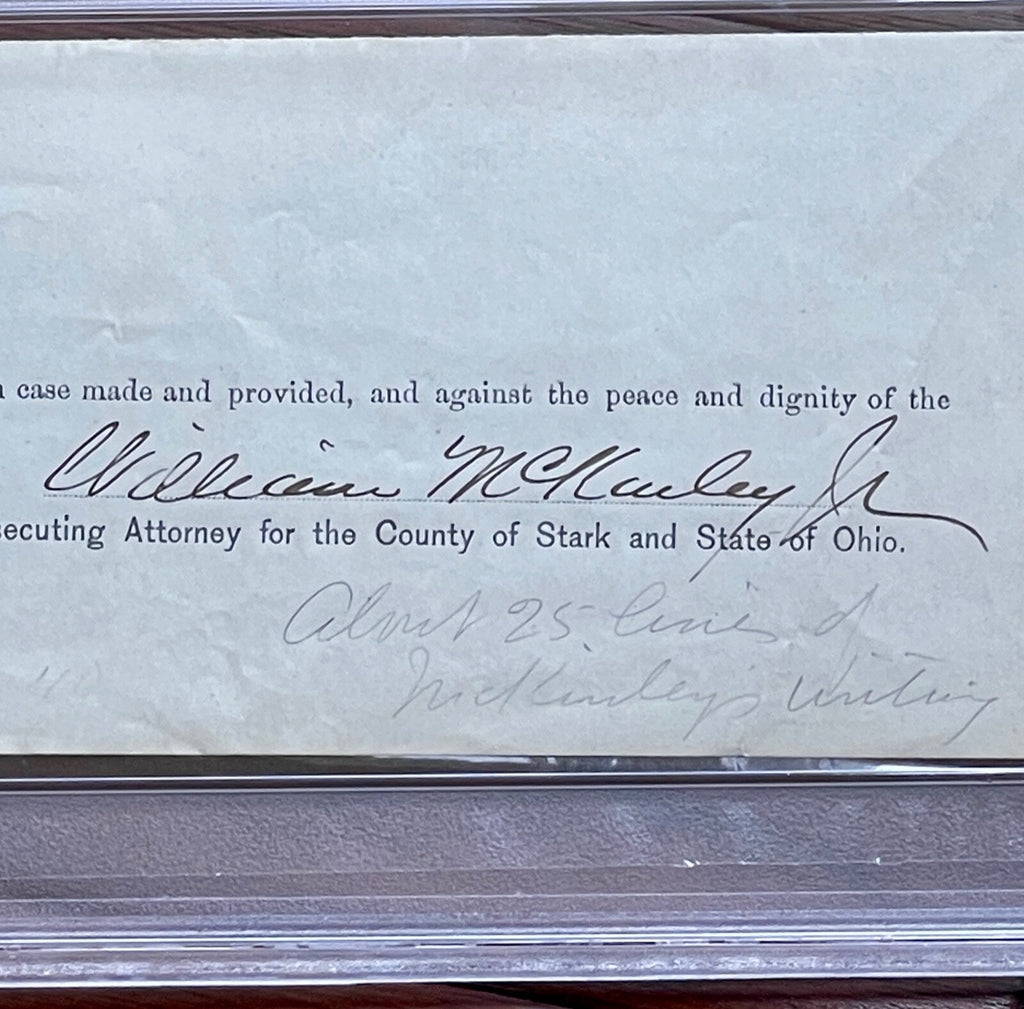 case made and provided, and against the peace and dignity of the
William McKinley Jr
ecuting Attorney for the County of Stark and State of Ohio.
About 25 lines of
McKinley's writing